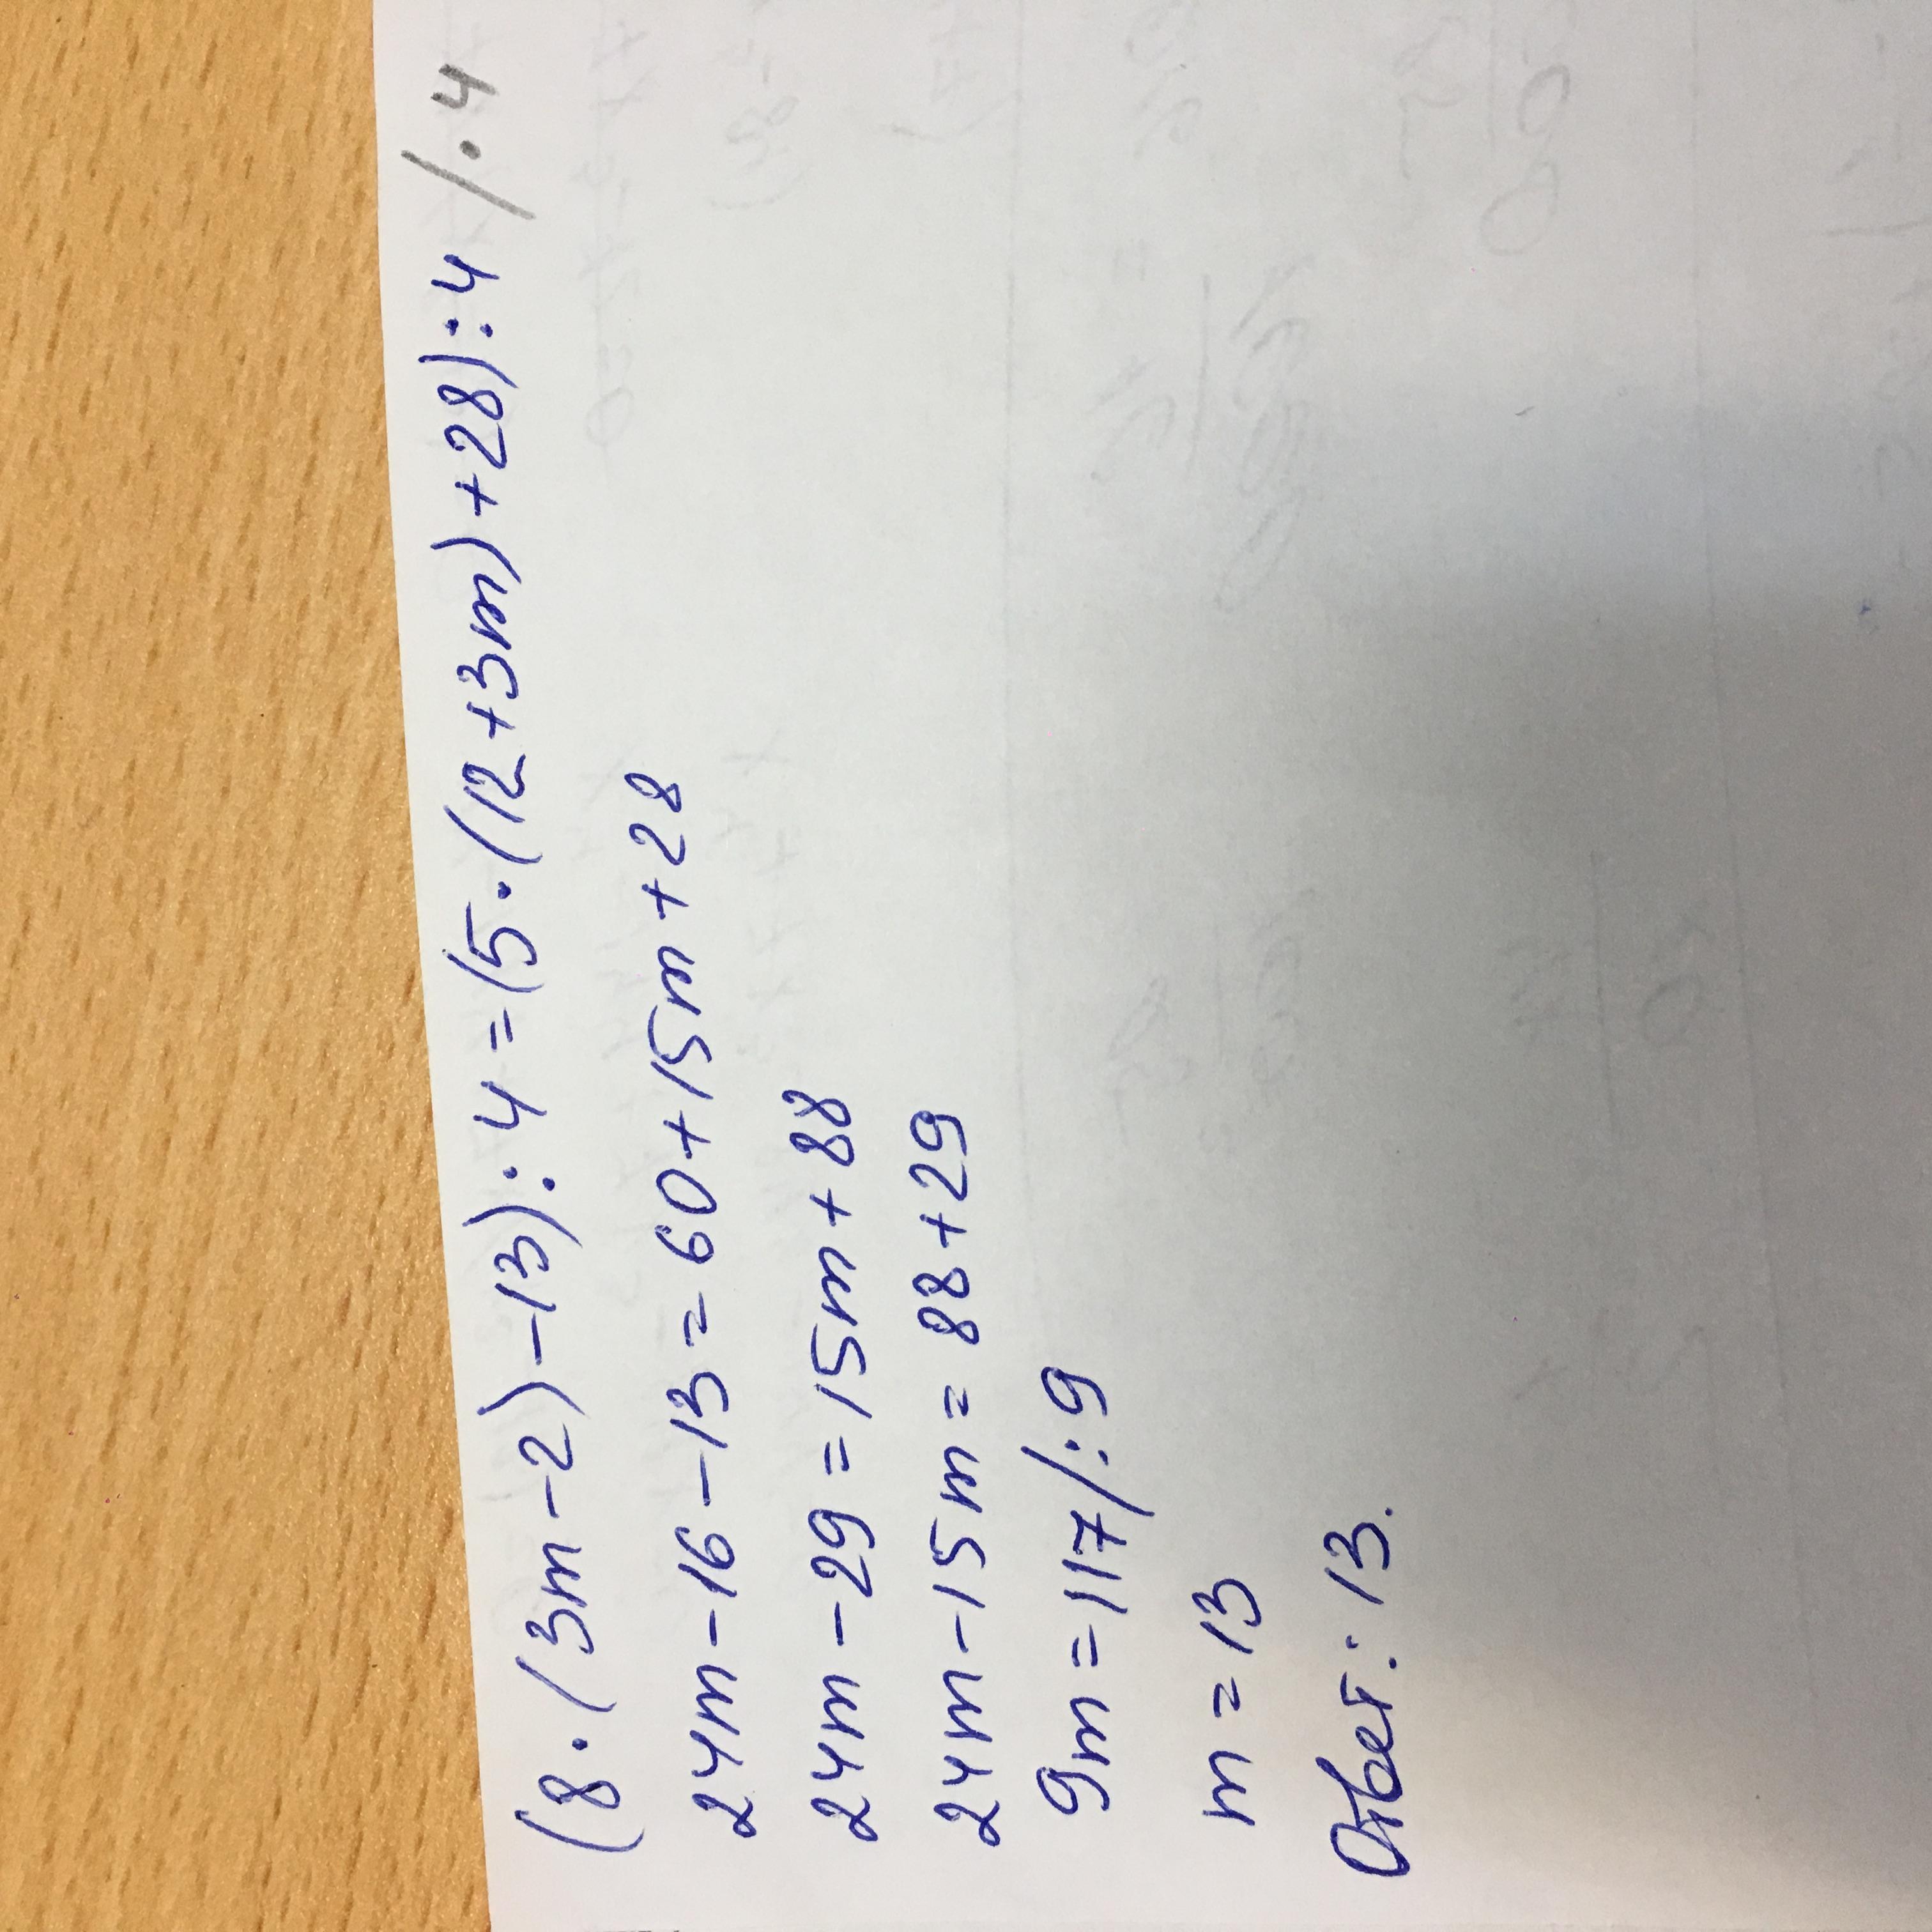 (8·(3m-2)-13):4=(5·(12+3m)+28):4 /·4
24m-16-13=60+15m+28
24m-29=15m+88
24m-15m=88+29
9m=117/:9
m=13
Ответ: 13.